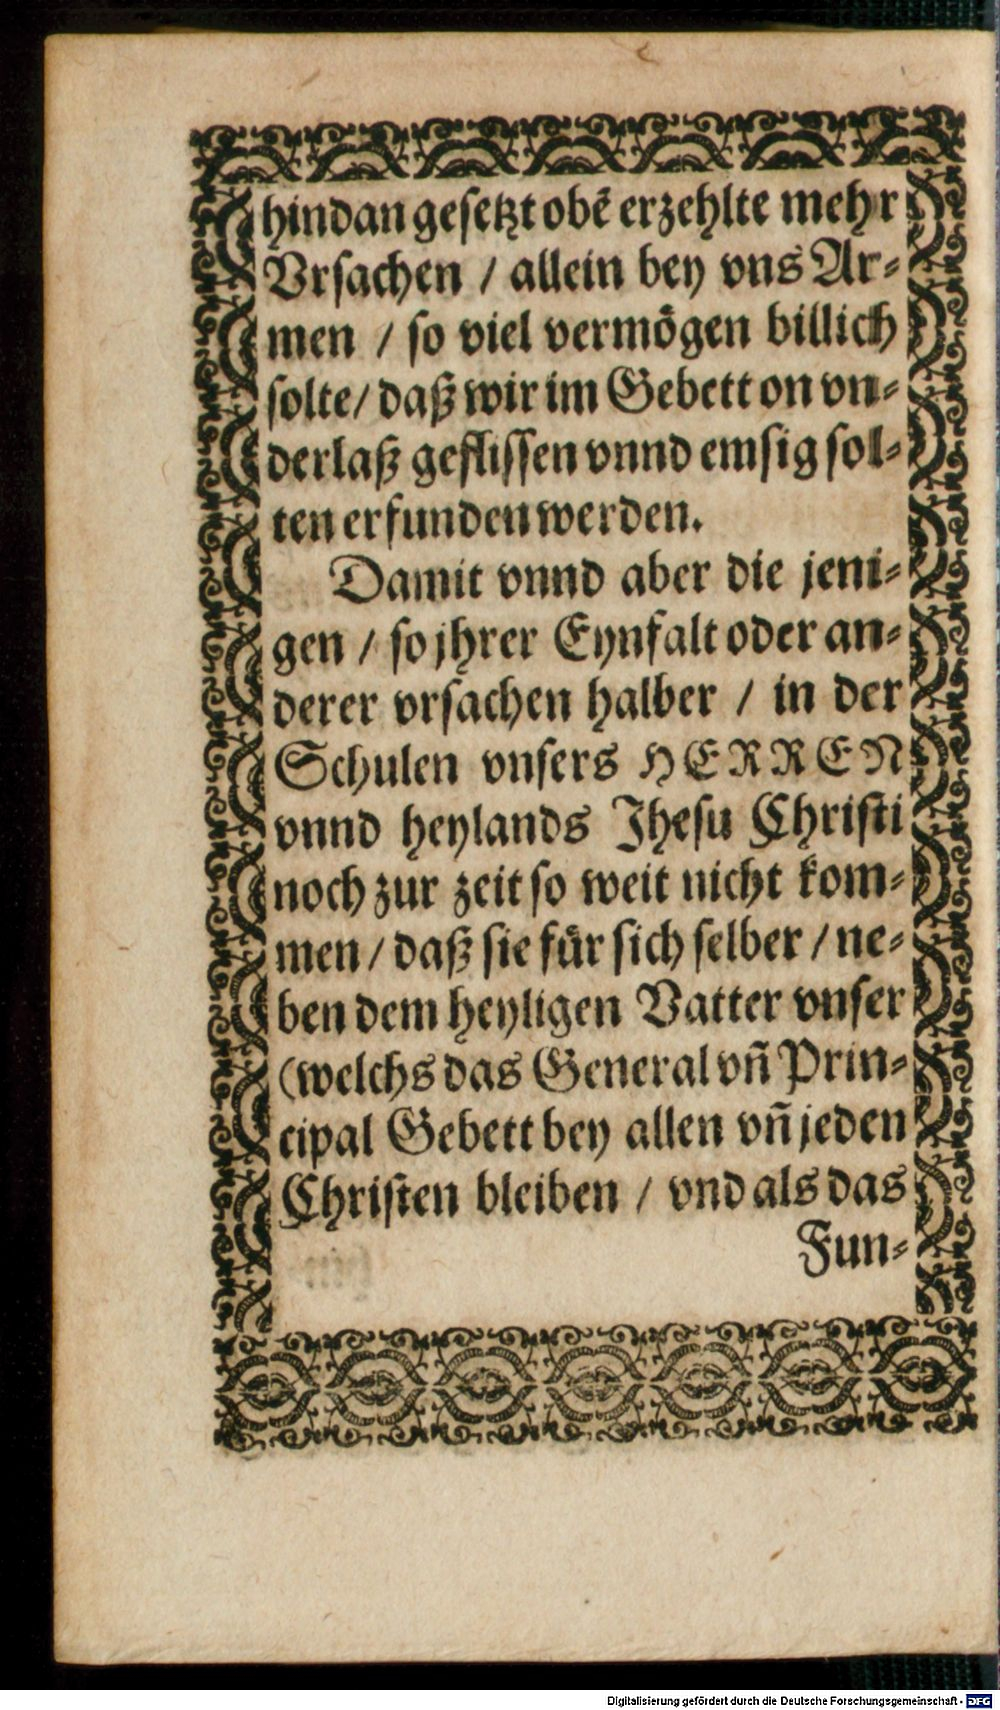 hindan gesetzt obẽ erzehlte mehr
Vrsachen / allein bey vns Ar-
men / so viel vermögen billich
solte / daß wir im Gebett on vn-
derlaß geflissen vnnd emsig sol-
ten erfunden werden.
Damit vnnd aber die jeni-
gen / so jhrer Eynfalt oder an-
derer vrsachen halber / in der
Schulen vnsers HERREN
vnnd heylands Jhesu Christi
noch zur zeit so weit nicht kom-
men / daß sie für sich selber / ne-
ben dem heyligen Vatter vnser
(welchs das General vñ Prin-
cipal Gebett bey allen vñ jeden
Christen bleiben / vnd als das
Fun-
Digitalisierung gefördert durch die Deutsche Forschungsgemeinschaft - DFG